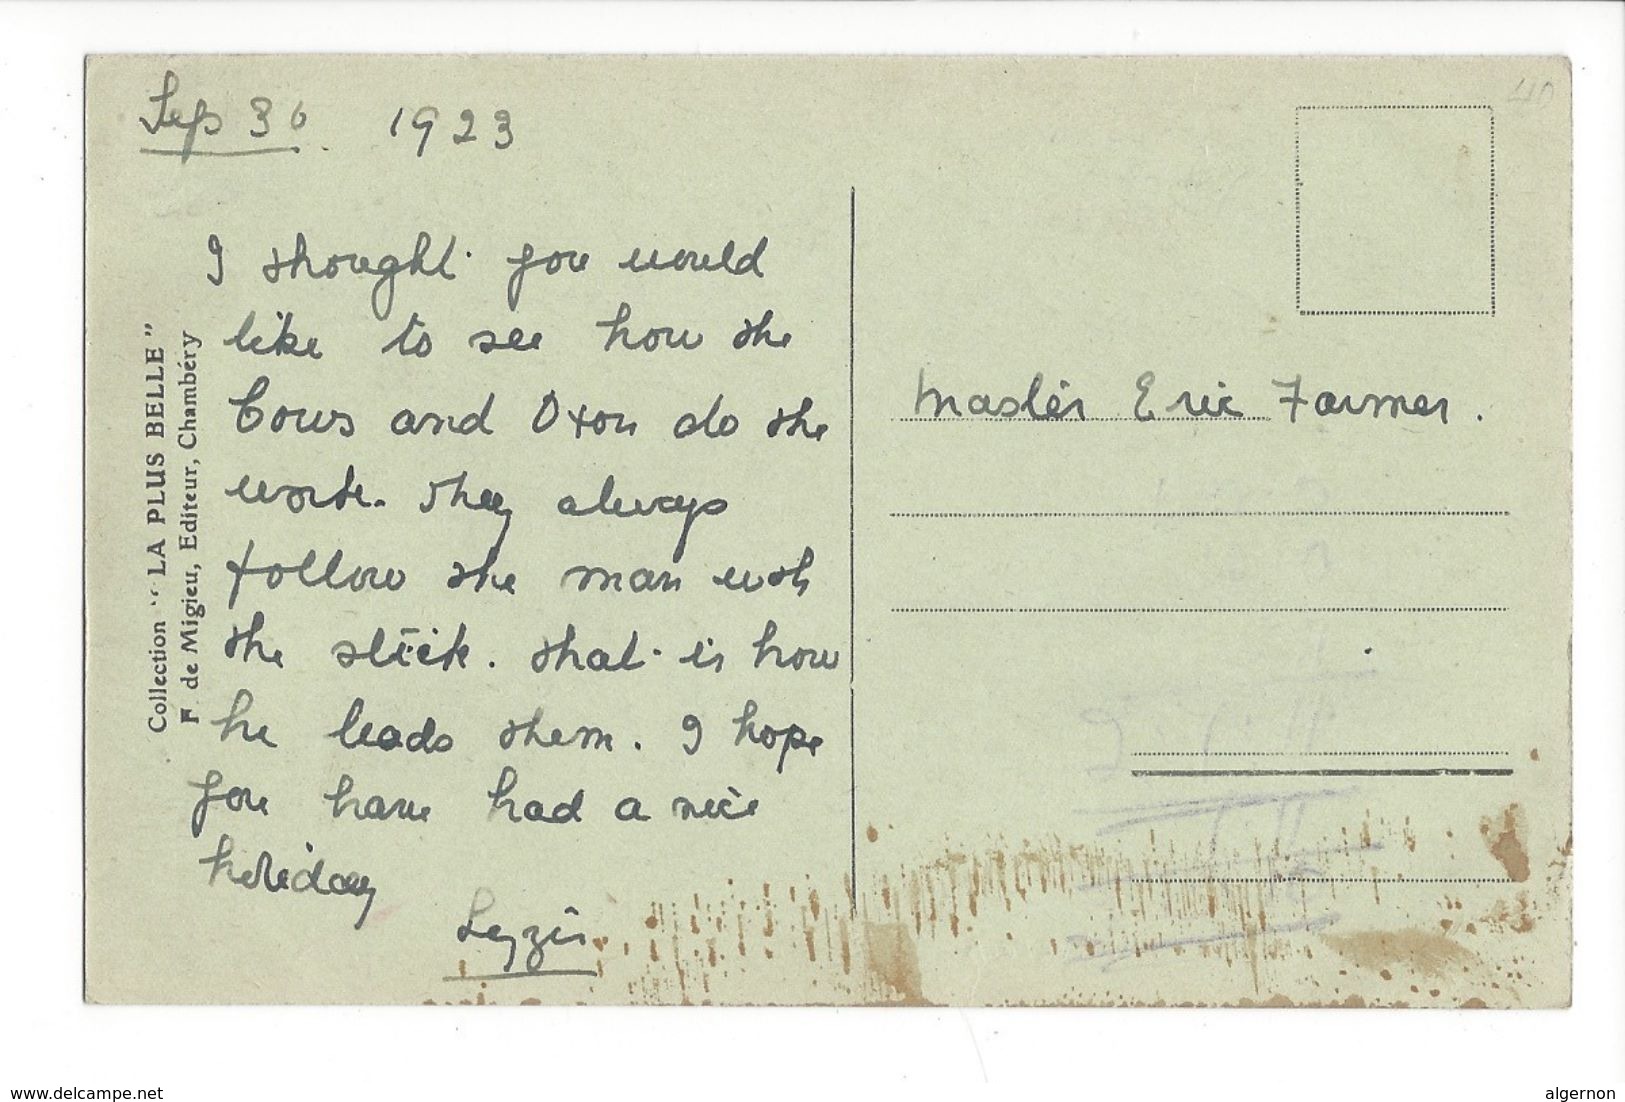 Sep 30 1923
I thought you would
like to see how the
Cows and Oxon do the
work. They always
follow the man with
the stick. That is how
he leads them. I hope
you have had a nice
holiday
Collection "LA PLUS BELLE"
F. de Migieu, Editeur, Chambéry
Master Eric Farmer.
delcampe.net
algernon